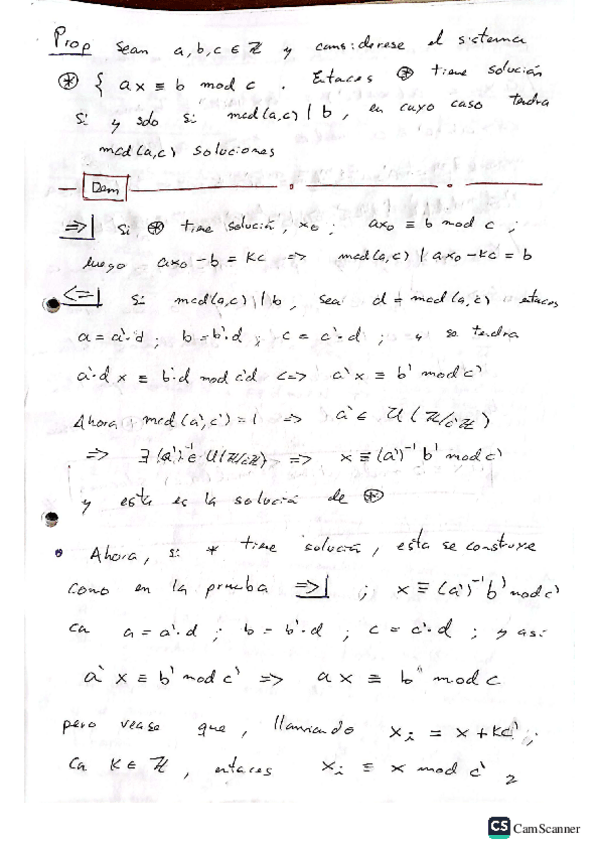 Prop Sean a, b, c ∈ ℤ y considerese el sistema
⊛ { ax ≡ b mod c . Entaces ⊛ tiene solución
si y solo si mcd(a,c) | b , en cuyo caso tendra
mcd(a,c) soluciones
Dem
=>| Si ⊛ tiene solución, x₀ ; ax₀ ≡ b mod c ;
luego ax₀ - b = Kc => mcd(a,c) | ax₀ - Kc = b
<=| Si mcd(a,c) | b , sea d = mcd(a,c) etaces
a = a'·d ; b = b'·d ; c = c'·d ; y se tendra
a'·d x ≡ b'·d mod c'd <=> a'x ≡ b' mod c'
Ahora mcd(a',c') = 1 => a' ∈ U(ℤ/c'ℤ)
=> ∃ (a')⁻¹ ∈ U(ℤ/c'ℤ) => x ≡ (a')⁻¹ b' mod c'
y esta es la solución de ⊛
• Ahora, si * tiene solución, esta se construye
como en la prueba =>| ; x ≡ (a')⁻¹ b' mod c'
ca a = a'·d ; b = b'·d ; c = c'·d ; y asi
a' x ≡ b' mod c' => ax ≡ b mod c
pero vease que, llamando xᵢ = x + Kc' ;
ca K ∈ ℤ , entaces xᵢ ≡ x mod c' ,
CS CamScanner